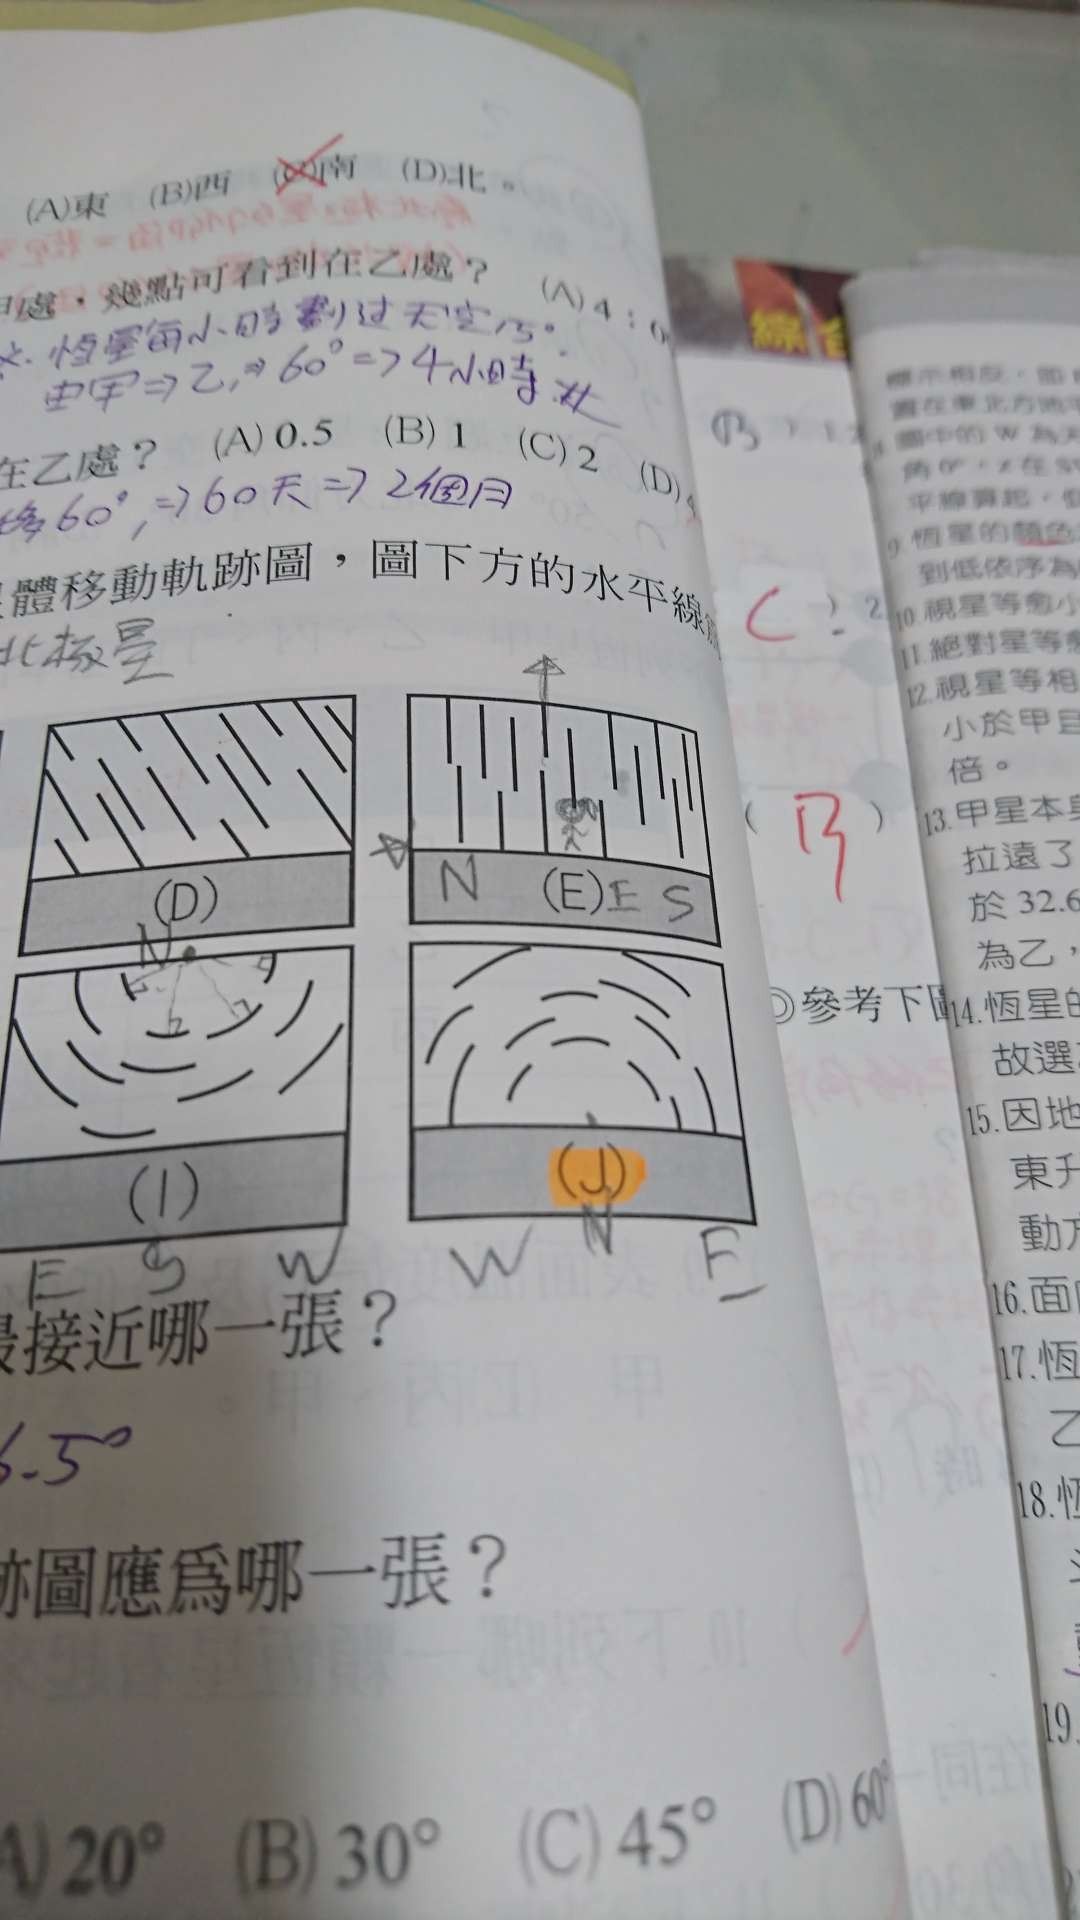 (A)東 (B)西 (C)南 (D)北。
處,幾點可看到在乙處? (A)4:0
恆星每小時劃过天空15°.
由甲⇒乙,⇒60°=>4小時
在乙處? (A) 0.5 (B) 1 (C) 2 (D)
移60°,=>60天=>2個月
體移動軌跡圖,圖下方的水平線
北極星
(D)
N (E) E S
N
(I)
E S W
(J)
W N E
最接近哪一張?
6.5°
跡圖應為哪一張?
A) 20° (B) 30° (C) 45° (D) 60°
綜合
C
2
( B )
◎參考下圖
標示相反,即
置在東北方地平
圖中的 W 為天
平線算起,
9.恆星的顏色
到低依序為
10.視星等愈小
11.絕對星等愈
12.視星等相
小於甲且
倍。
13.甲星本身
拉遠了
於 32.6
為乙,
14.恆星的
故選
15.因地
東升
動方
16.面向
17.恆
乙
18.恆
19.